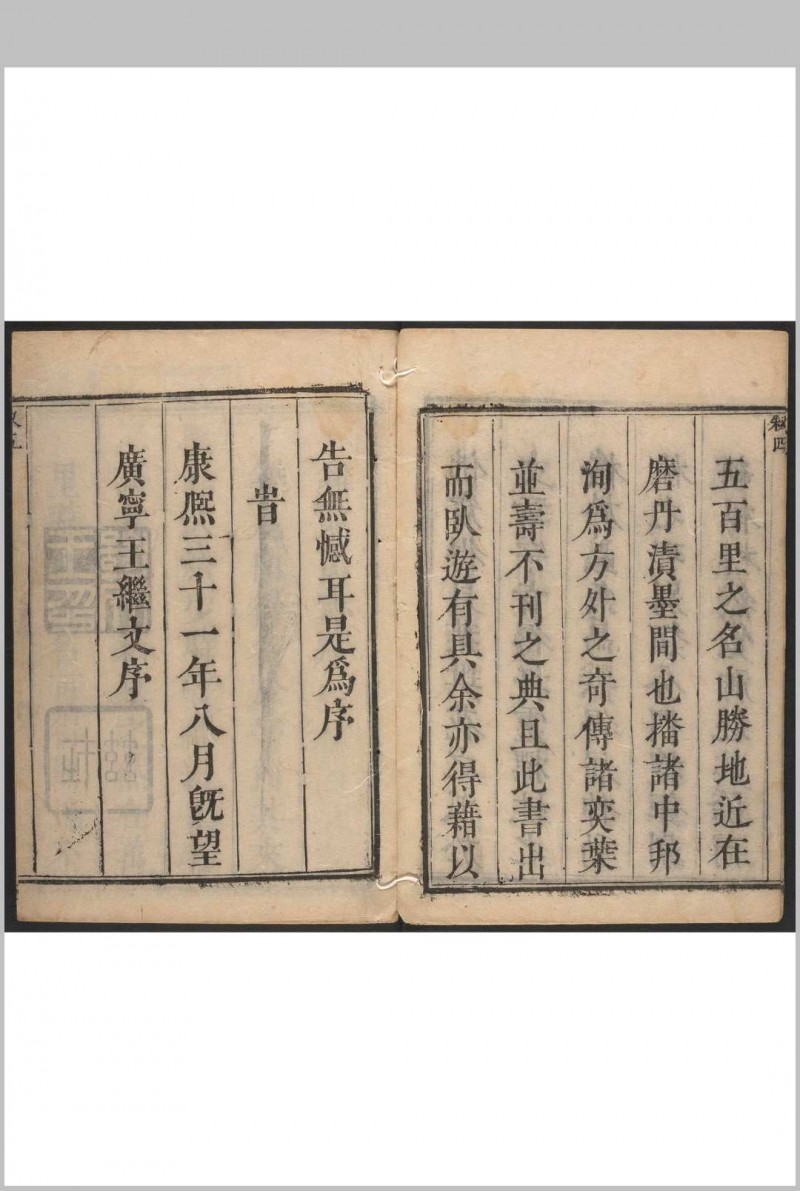 五百里之名山勝地近在
磨丹漬墨間也播諸中邦
洵爲方外之奇傳諸奕葉
並壽不刊之典且此書出
而臥遊有具余亦得藉以
告無憾耳是爲序
旹
康熙三十一年八月旣望
廣寧王繼文序